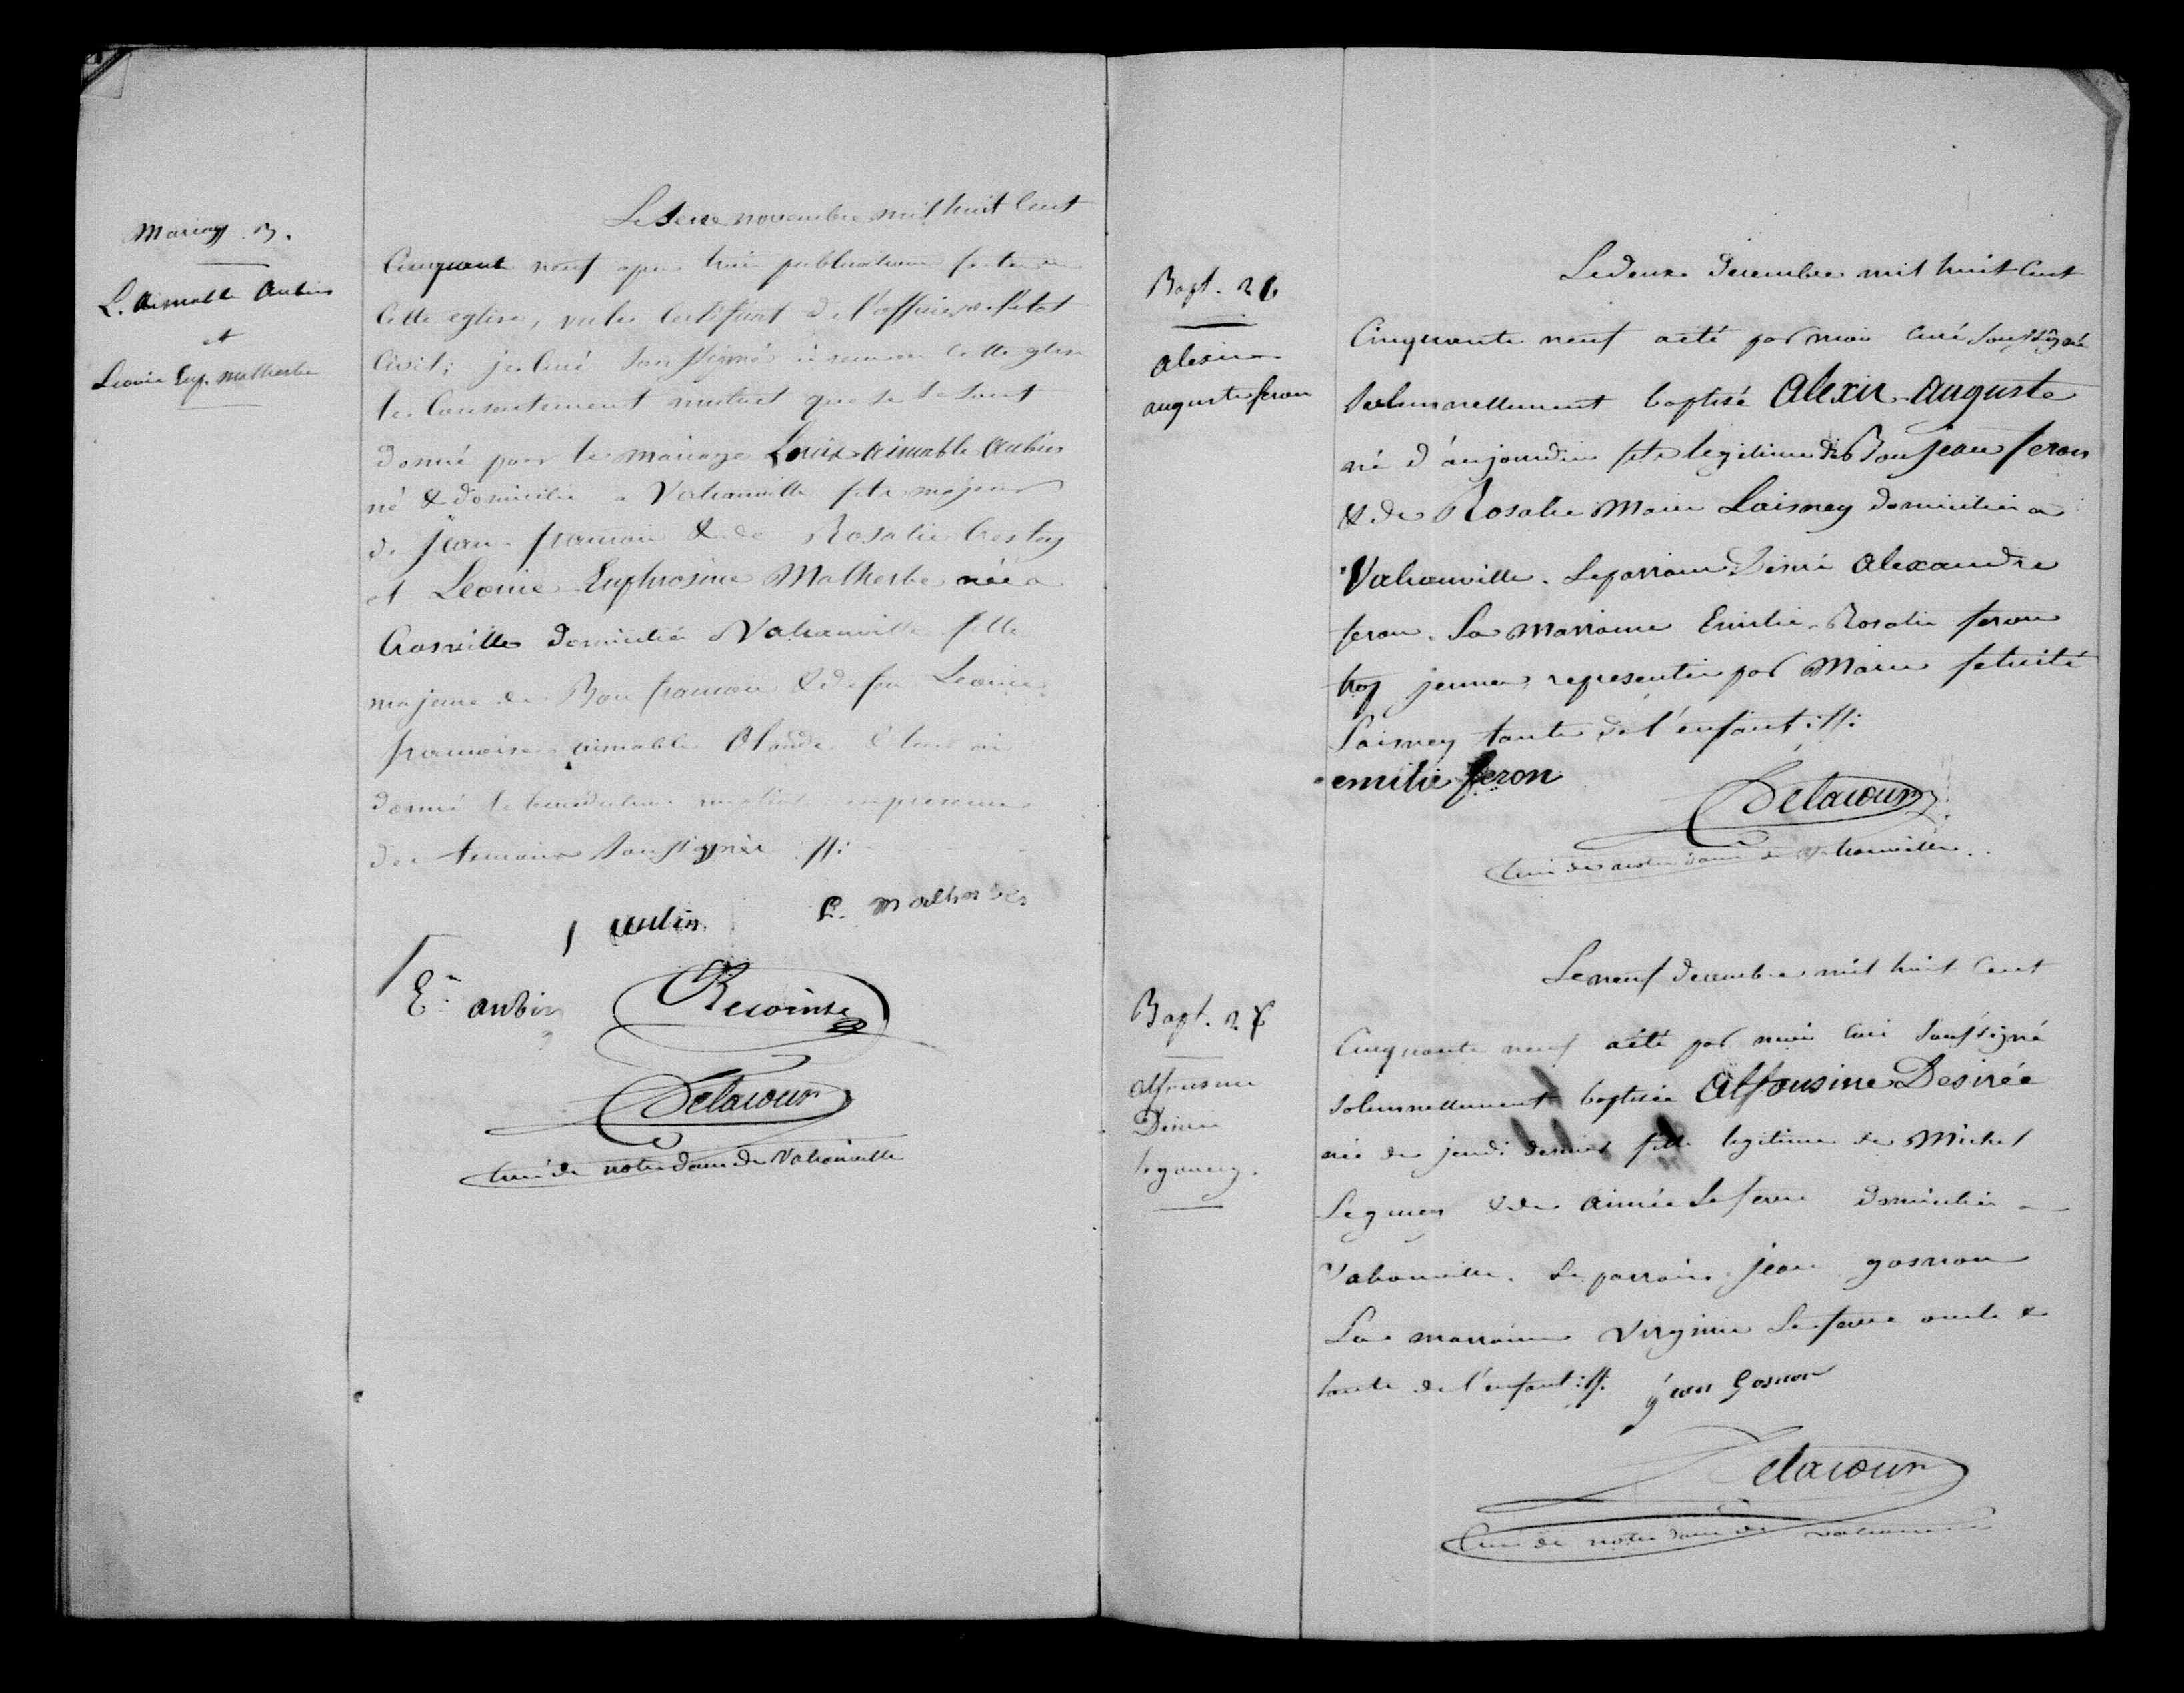 Mariag 13.
L. Aimable Aubin
et
Leonie Eup. Malherbe
Le seize novembre mil huit cent
Cinquante neuf apres trois publications faites en
cette eglise, vu le certificat de l'officier de l'etat
civil; je curé soussigné ai recu en cette eglise
le consentement mutuel que se sont
donné pour le mariage Louis Aimable Aubin
né & domicilié a Valcanville fils majeur
de Jean françois & de Rosalie
et Leonie Euphrosine Malherbe née a
Cosville domiciliée a Valcanville fille
majeure de Bon françois & de feu Leonie
françoise aimable & leur ai
donné la benediction nuptiale en presence
des temoins soussignés ://:
aubin L. Malherbe
E. aubin
Delacour
Curé de notre dame de Valcanville
Bapt. 26
Alexis
auguste feron
Le deux decembre mil huit cent
Cinquante neuf a été par moi curé soussigné
solennellement baptisé Alexis-Auguste
né d'aujourdui fils legitime de Bon Jean feron
& de Rosalie Marie Laisney domiciliés a
Valcanville. Le parrain Désiré Alexandre
feron. La Marraine Emilie-Rosalie feron
trop jeune, representée par Marie felicité
Laisney tante de l'enfant ://:
emilie feron
Delacour
Curé de notre dame de Valcanville.
Bapt. 27
Alfonsine
Desirée
Le neuf decembre mil huit cent
Cinquante neuf a été par moi curé soussigné
solennellement baptisée Alfonsine Desirée
née de jeudi dernier fille legitime de Michel
& de Aimée domiciliés a
Valcanville. Le parrain Jean gosnon
La marraine Virginie oncle &
tante de l'enfant ://: jean Gosnon
Delacour
Curé de notre dame de Valcanville